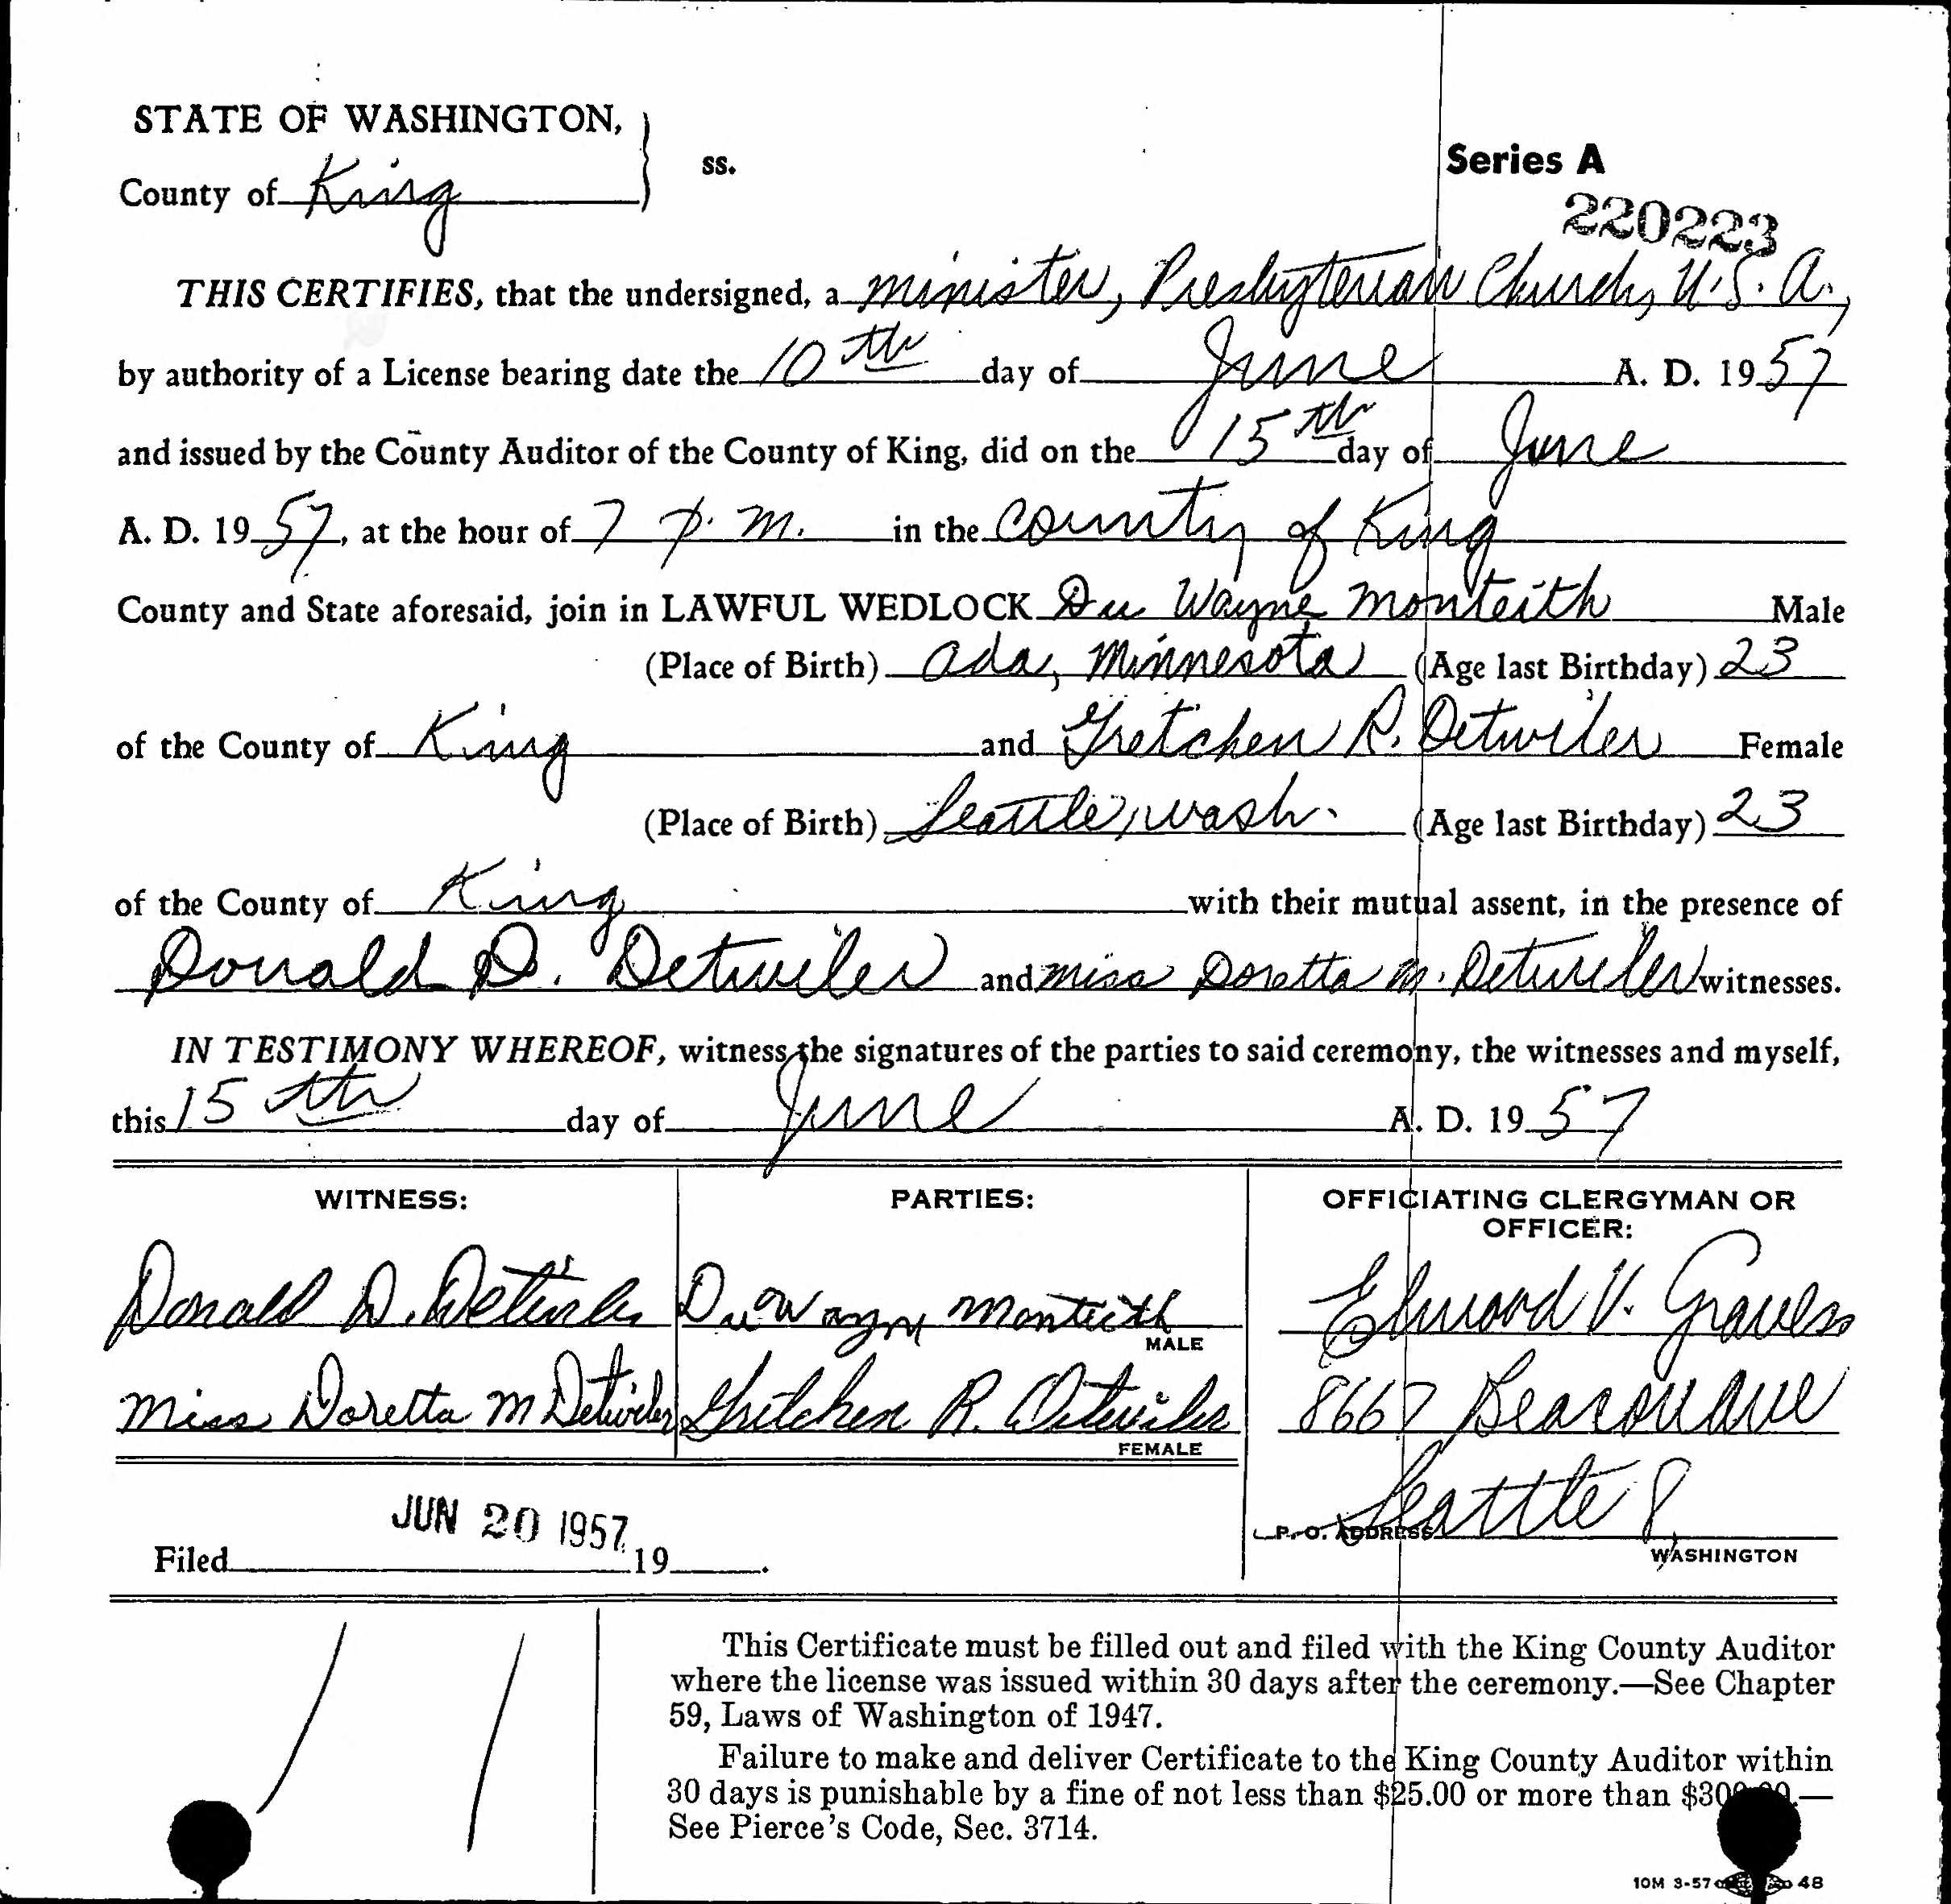 STATE OF WASHINGTON,
County of King
ss.
Series A
220223
THIS CERTIFIES, that the undersigned, a minister, Presbyterian Church, U.S.A.,
by authority of a License bearing date the 10th day of June A. D. 1957
and issued by the County Auditor of the County of King, did on the 15th day of June
A. D. 1957, at the hour of 7 p.m. in the County of King
County and State aforesaid, join in LAWFUL WEDLOCK Du Wayne Monteith Male
(Place of Birth) Ada, Minnesota (Age last Birthday) 23
of the County of King and Gretchen R. Detwiler Female
(Place of Birth) Seattle, Wash. (Age last Birthday) 23
of the County of King with their mutual assent, in the presence of
Donald D. Detwiler and Miss Doretta M. Detwiler witnesses.
IN TESTIMONY WHEREOF, witness the signatures of the parties to said ceremony, the witnesses and myself,
this 15th day of June A. D. 1957
WITNESS:
Donald D. Detwiler
Miss Doretta M Detwiler
PARTIES:
DuWayne Monteith
MALE
Gretchen R. Detwiler
FEMALE
OFFICIATING CLERGYMAN OR
OFFICER:
Elwood V. Graves
8667 Beacon Ave
Seattle 8,
P. O. ADDRESS
WASHINGTON
JUN 20 1957
Filed 19 .
This Certificate must be filled out and filed with the King County Auditor
where the license was issued within 30 days after the ceremony.—See Chapter
59, Laws of Washington of 1947.
Failure to make and deliver Certificate to the King County Auditor within
30 days is punishable by a fine of not less than $25.00 or more than $300.00.—
See Pierce's Code, Sec. 3714.
10M 3-57 48